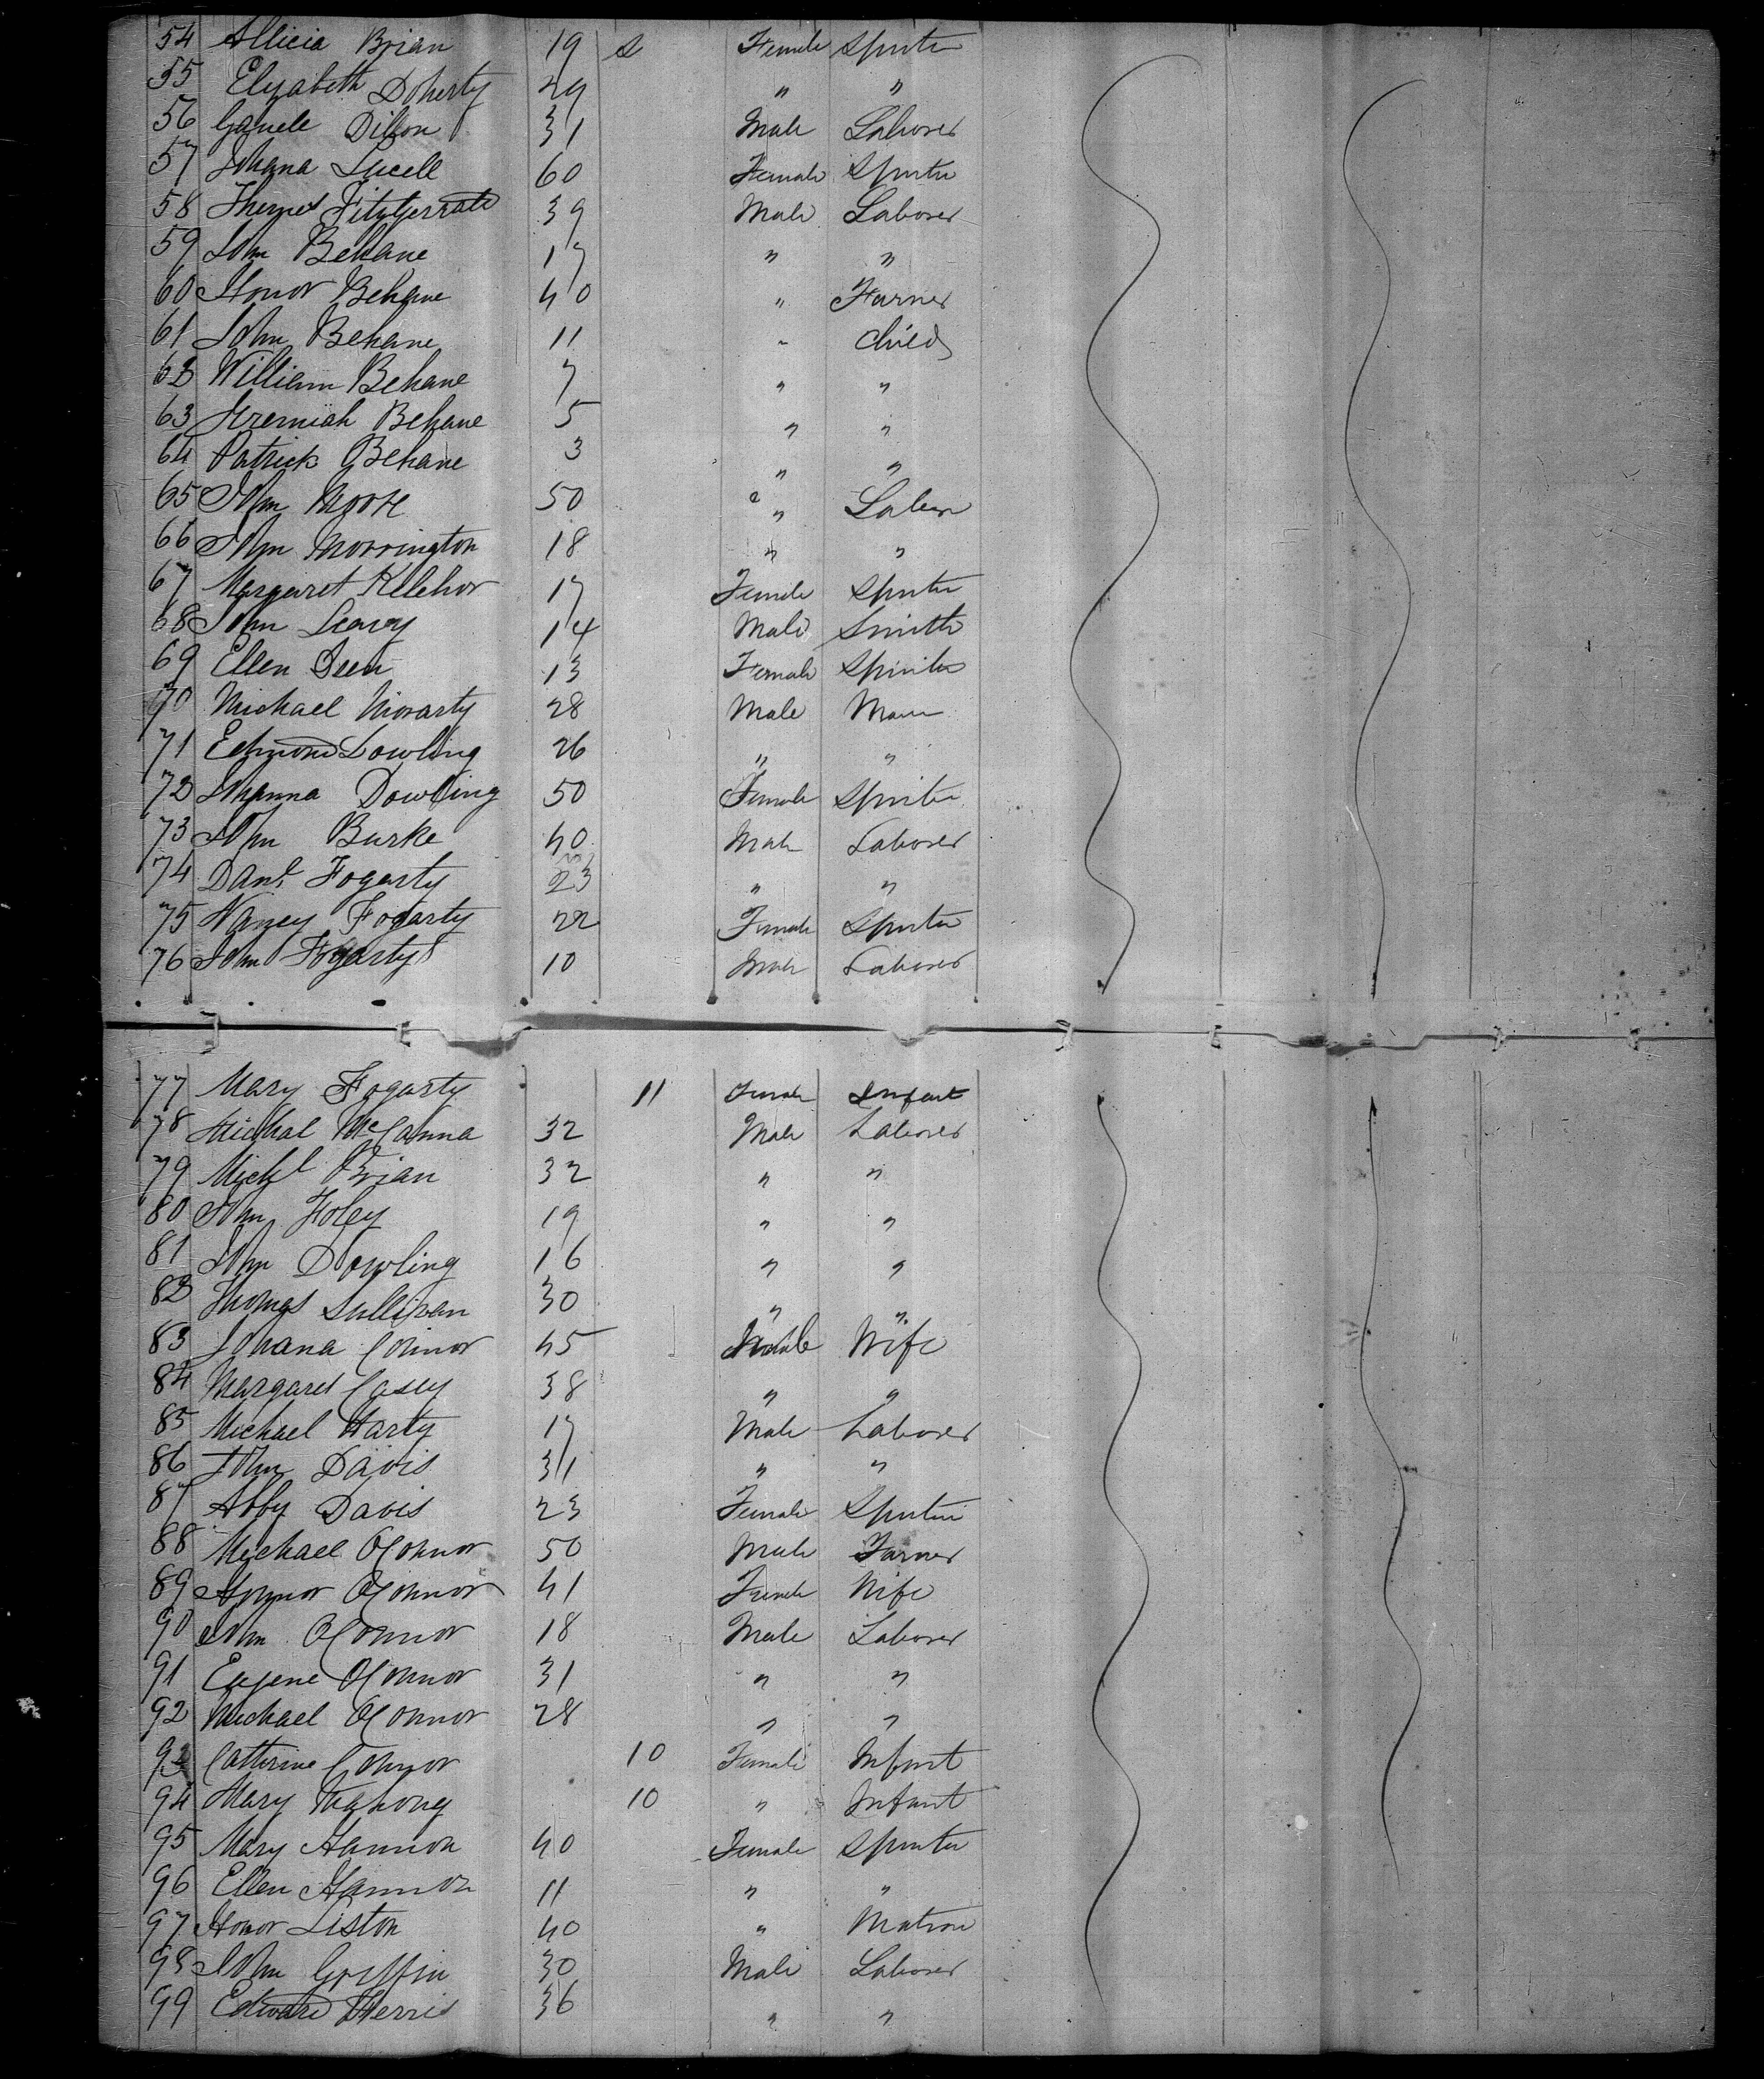 54 Allicia Brian 19 s Female Spinster
55 Elizabeth Doherty 29 " "
56 Dillon 31 Male Laborer
57 Johana 60 Female Spinster
58 Thomas Fitzgerrald 39 Male Laborer
59 John Behane 17 " "
60 Honor Behane 40 " Farmer
61 John Behane 11 " Child
62 William Behane 7 " "
63 Jeremiah Behane 5 " "
64 Patrick Behane 3 " "
65 John Moore 50 " Laborer
66 John Morrington 18 " "
67 Margaret Kelehor 17 Female Spinster
68 John Leary 14 Male Smith
69 Ellen 13 Female Spinster
70 Michael Morarty 28 Male
71 Edmond Dowling 26 " "
72 Johanna Dowling 50 Female Spinster
73 John Burke 40 Male Laborer
74 Danl. Fogarty 23 " "
75 Nancy Fogarty 22 Female Spinster
76 John Fogarty 10 Male Laborer
77 Mary Fogarty 11 Female Infant
78 Michal McCanna 32 Male Laborer
79 Michl Brian 32 " "
80 John Foley 19 " "
81 John Dowling 16 " "
82 Thomas Sullivan 30 " "
83 Johana Connor 45 Female Wife
84 Margaret Casey 38 " "
85 Michael Harty 17 Male Laborer
86 John Davis 31 " "
87 Abby Davis 23 Female Spinster
88 Michael OConnor 50 Male Farmer
89 Honnor OConnor 41 Female Wife
90 John OConnor 18 Male Laborer
91 Eugene OConnor 31 " "
92 Michael OConnor 28 " "
93 Catterine Connor 10 Female Infant
94 Mary Mahony 10 " Infant
95 Mary Hannon 40 Female Spinster
96 Ellen Hannon 11 " "
97 Honor Liston 40 " Matron
98 John Griffin 30 Male Laborer
99 Edward Herris 36 " "